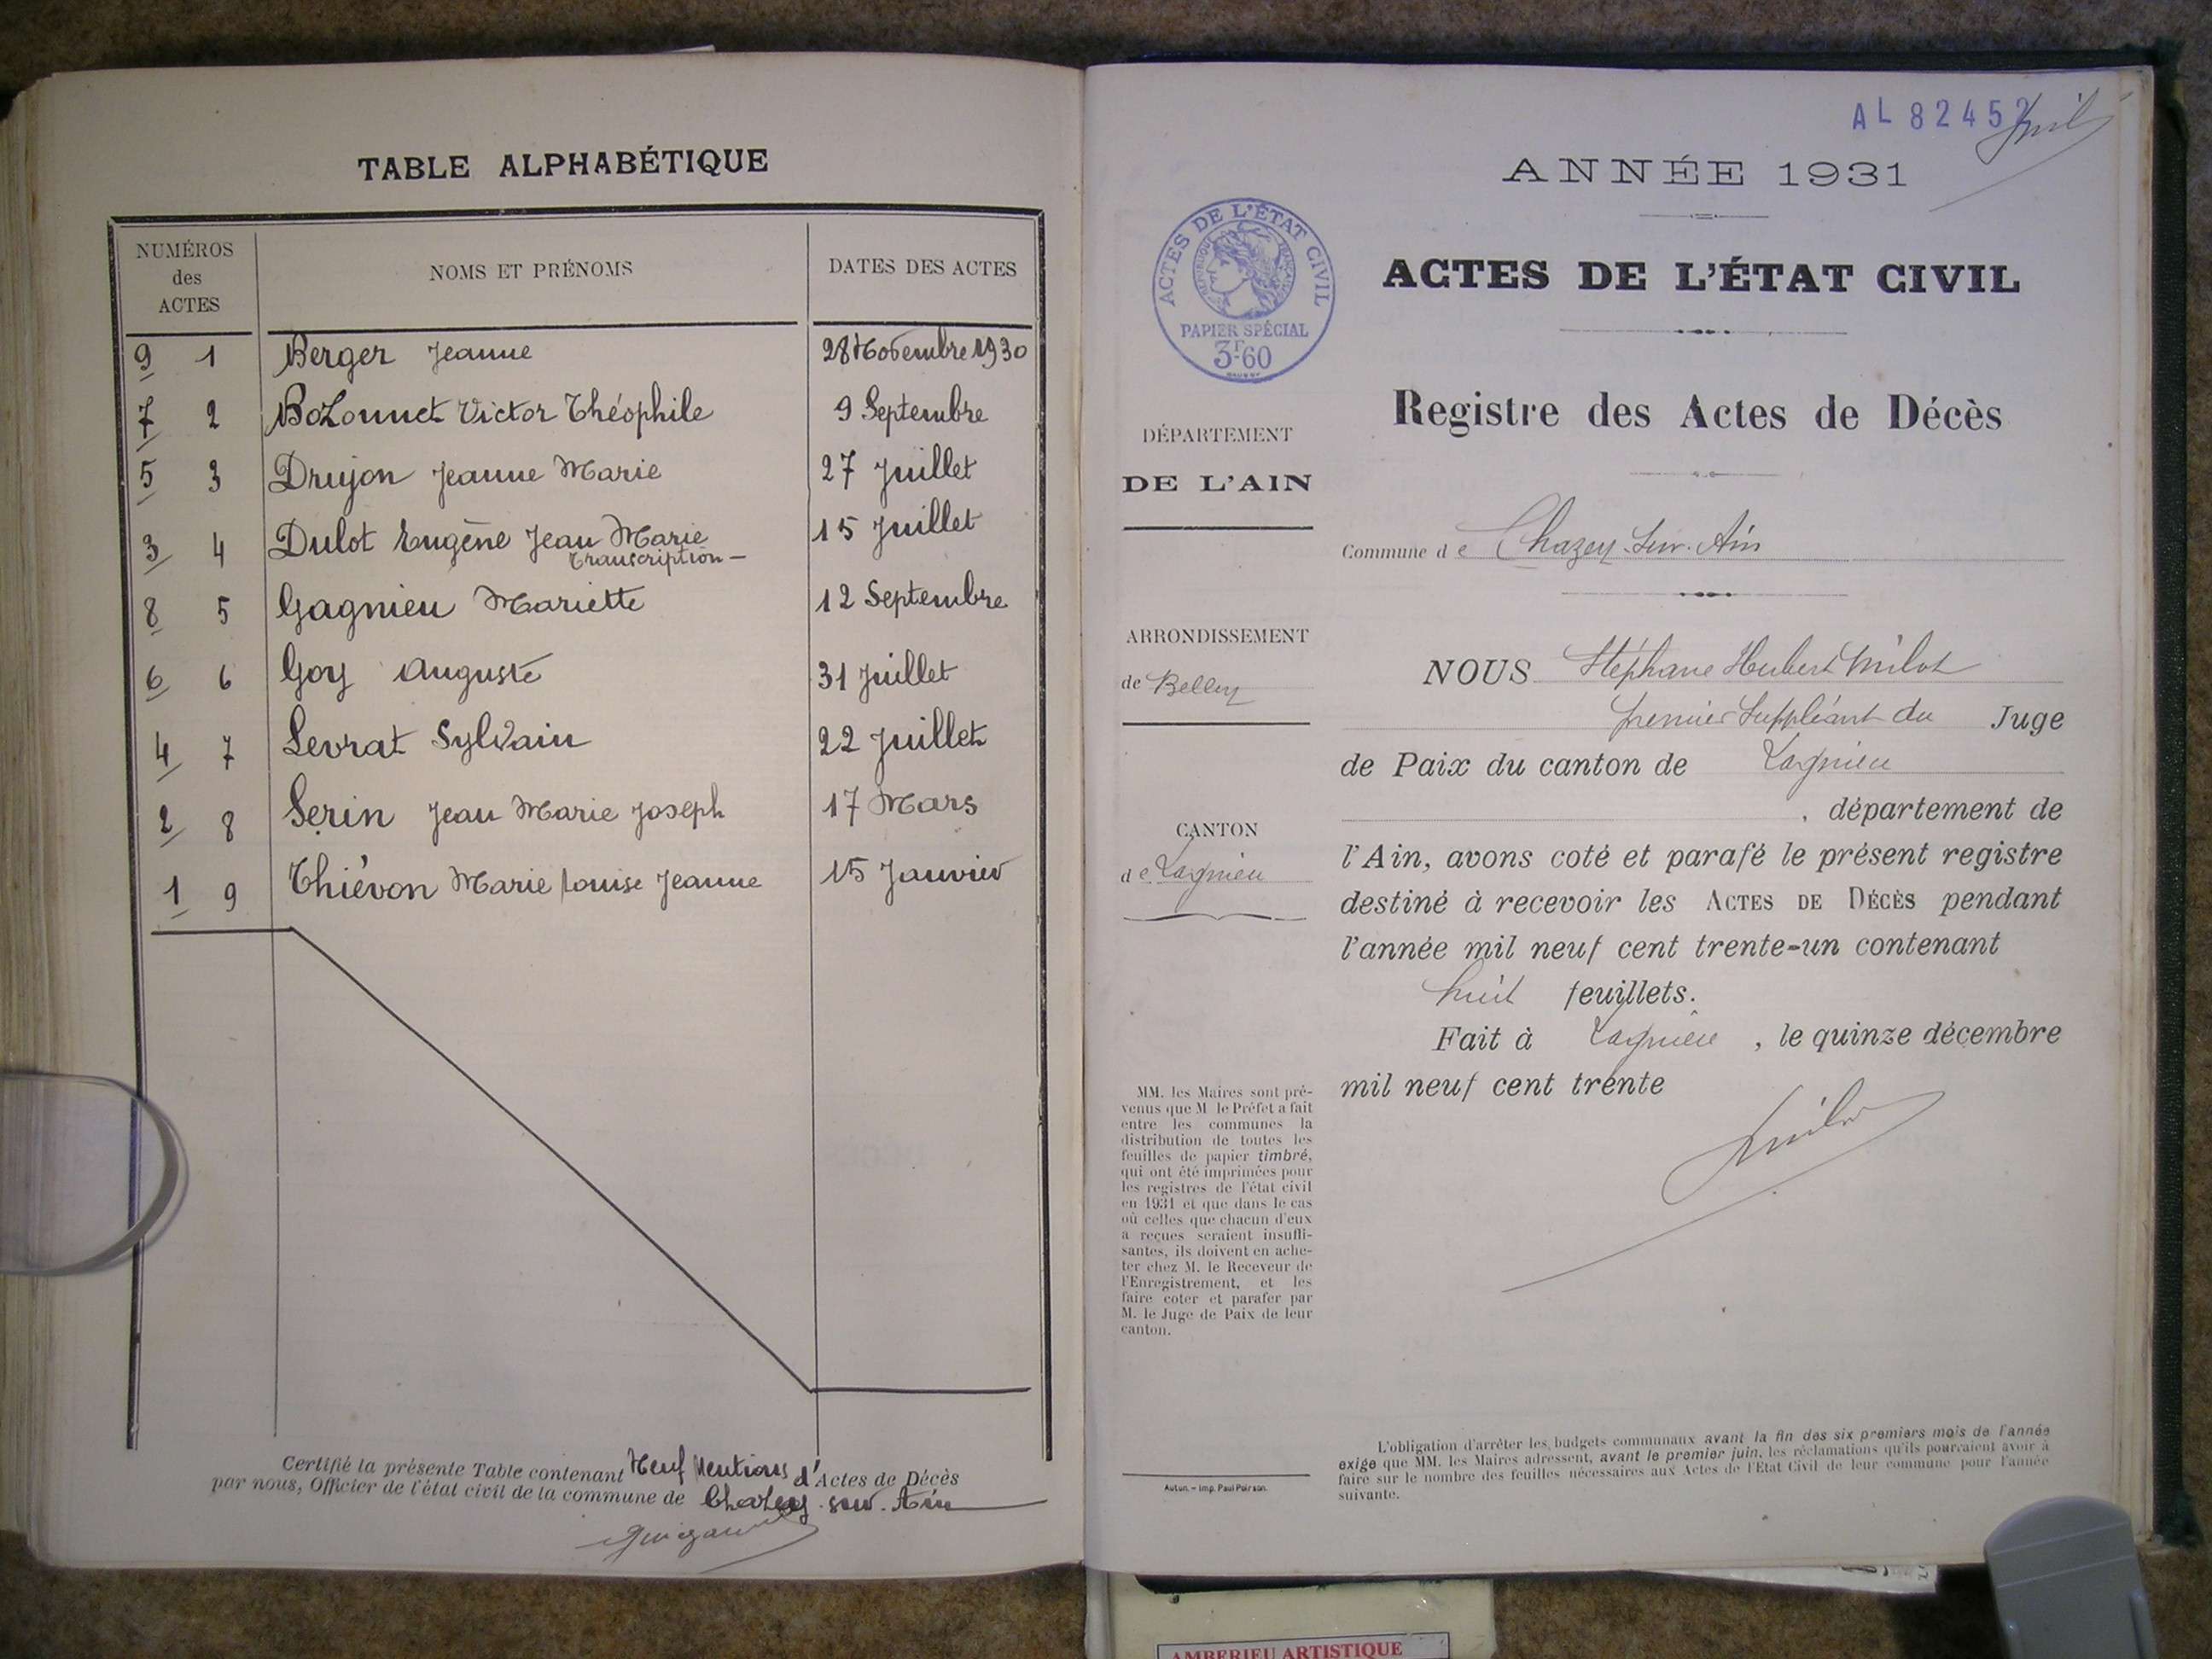 TABLE ALPHABÉTIQUE
NUMÉROS des ACTES
NOMS ET PRÉNOMS
DATES DES ACTES
9 1 Berger Jeanne 28 Novembre 1930
7 2 Bozonnet Victor Théophile 9 Septembre
5 3 Drujon Jeanne Marie 27 Juillet
3 4 Dulot Eugène Jean Marie 15 Juillet
Transcription —
8 5 Gagnieu Mariette 12 Septembre
6 6 Goy Auguste 31 Juillet
4 7 Levrat Sylvain 22 Juillet
2 8 Serin Jean Marie Joseph 17 Mars
1 9 Thiévon Marie Louise Jeanne 15 Janvier
Certifié la présente Table contenant Neuf Mentions d'Actes de Décès
par nous, Officier de l'état civil de la commune de Chazey-sur-Ain
AL 8245
ANNÉE 1931
ACTES DE L'ÉTAT CIVIL
PAPIER SPÉCIAL
3F.60
ACTES DE L'ÉTAT CIVIL
Registre des Actes de Décès
DÉPARTEMENT
DE L'AIN
Commune de Chazey-sur-Ain
ARRONDISSEMENT
de Belley
CANTON
de Lagnieu
NOUS Stéphane Hubert Milot
premier Suppléant du Juge
de Paix du canton de Lagnieu
, département de
l'Ain, avons coté et parafé le présent registre
destiné à recevoir les ACTES DE DÉCÈS pendant
l'année mil neuf cent trente-un contenant
huit feuillets.
Fait à Lagnieu, le quinze décembre
mil neuf cent trente
MM. les Maires sont pré-
venus que M le Préfet a fait
entre les communes la
distribution de toutes les
feuilles de papier timbré,
qui ont été imprimées pour
les registres de l'état civil
en 1931 et que dans le cas
où celles que chacun d'eux
a reçues seraient insuffi-
santes, ils doivent en ache-
ter chez M. le Receveur de
l'Enregistrement, et les
faire coter et parafer par
M. le Juge de Paix de leur
canton.
Autun. – Imp. Paul Poirson.
L'obligation d'arrêter les budgets communaux avant la fin des six premiers mois de l'année
exige que MM. les Maires adressent, avant le premier juin, les réclamations qu'ils pourraient avoir à
faire sur le nombre des feuilles nécessaires aux Actes de l'État Civil de leur commune pour l'année
suivante.
AMBERIEU ARTISTIQUE